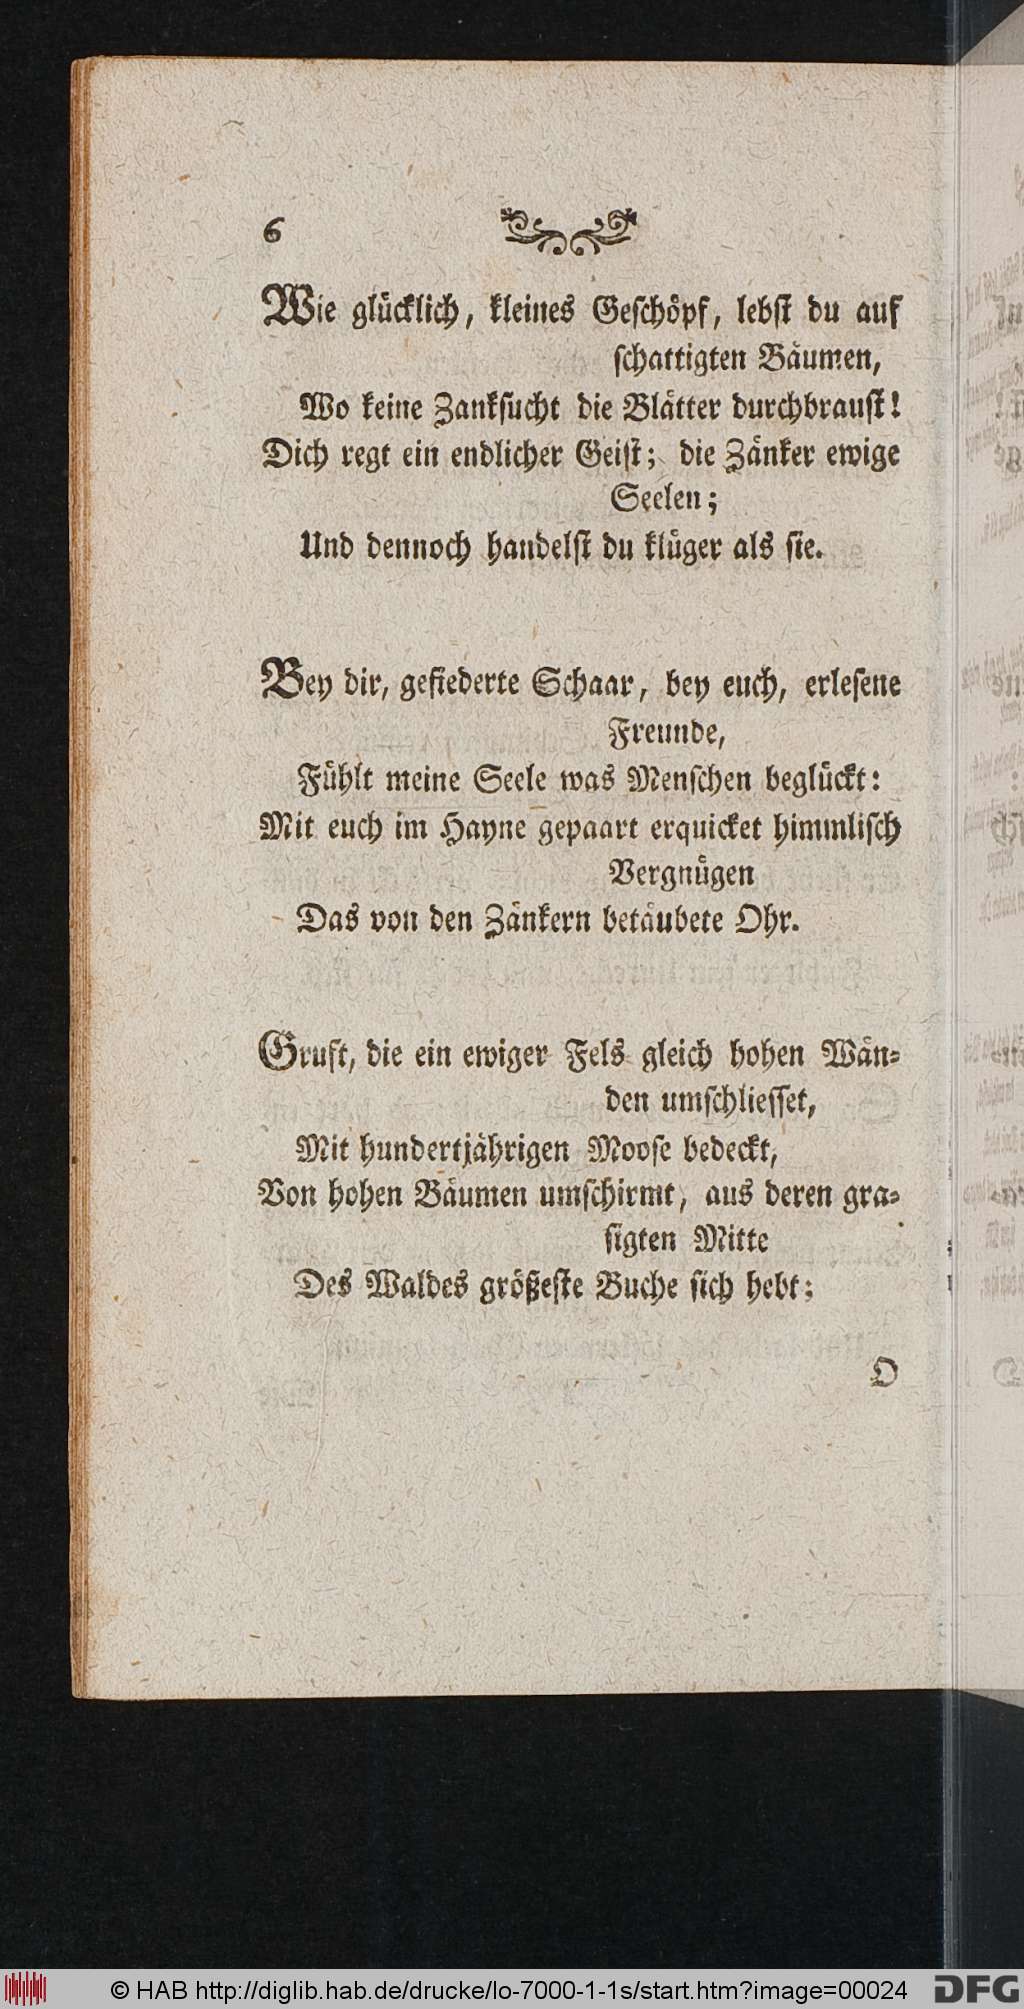 6
Wie glücklich, kleines Geschöpf, lebst du auf
schattigten Bäumen,
Wo keine Zanksucht die Blätter durchbraust!
Dich regt ein endlicher Geist; die Zänker ewige
Seelen;
Und dennoch handelst du klüger als sie.
Bey dir, gefiederte Schaar, bey euch, erlesene
Freunde,
Fühlt meine Seele was Menschen beglückt:
Mit euch im Hayne gepaart erquicket himmlisch
Vergnügen
Das von den Zänkern betäubete Ohr.
Gruft, die ein ewiger Fels gleich hohen Wän-
den umschliesset,
Mit hundertjährigen Moose bedeckt,
Von hohen Bäumen umschirmt, aus deren gra-
sigten Mitte
Des Waldes größeste Buche sich hebt;
O
© HAB http://diglib.hab.de/drucke/lo-7000-1-1s/start.htm?image=00024
DFG